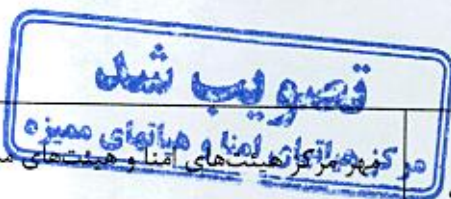 تصویب شد
مرکز هیاتهای امنا و هیاتهای ممیزه
مهر مرکز هیئت‌های امنا و هیئت‌های